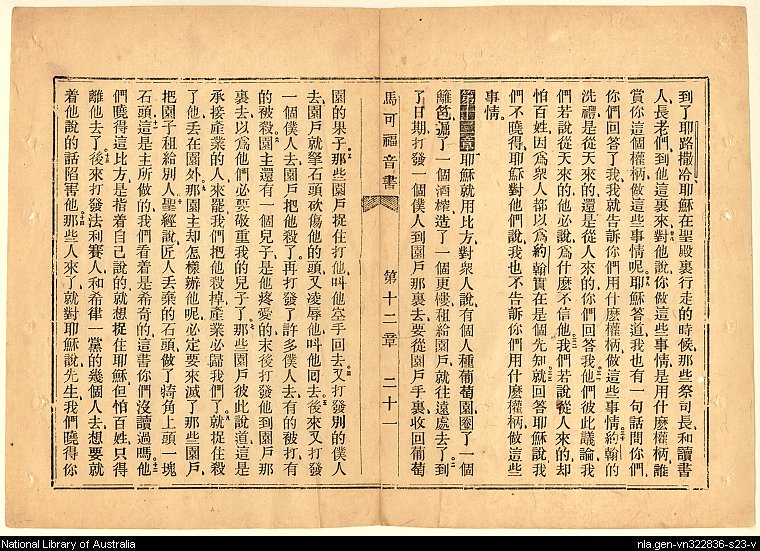 到了耶路撒冷耶穌在聖殿裏行走的時候那些祭司長和讀書
人長老們到他這裏來對他說你做這些事情是用什麼權柄誰
賞你這個權柄做這些事情呢耶穌答道我也有一句話問你們
你們回答了我我就告訴你們用什麼權柄做這些事情約翰的
洗禮是從天來的還是從人來的你們回答我他們彼此議論我
們若說從天來的他必說爲什麼不信他我們若說從人來的却
怕百姓因爲衆人都以爲約翰實在是個先知就回答耶穌說我
們不曉得耶穌對他們說我也不告訴你們用什麼權柄做這些
事情
第十二章耶穌就用比方對衆人說有個人種葡萄園圈了一個
籬笆掘了一個酒榨造了一個更樓租給園戶就往遠處去了到
了日期打發一個僕人到園戶那裏去要從園戶手裏收回葡萄
馬可福音書 第十二章 二十一
園的果子那些園戶捉住打他叫他空手回去又打發別的僕人
去園戶就拏石頭砍傷他的頭又凌辱他叫他回去後來又打發
一個僕人去園戶把他殺了再打發了許多僕人去有的被打有
的被殺園主還有一個兒子是他疼愛的末後打發他到園戶那
裏去以爲他們必要敬重我的兒子了那些園戶彼此說道這是
承接產業的人來罷我們把他殺掉產業必歸我們了就捉住殺
了他丟在園外那園主却怎樣辦他呢必定要來滅了那些園戶
把園子租給別人聖經說匠人丟棄的石頭做了犄角上頭一塊
石頭這是主所做的我們看着是希奇的這書你們沒讀過嗎他
們曉得這比方是指着自己說的就想捉住耶穌但怕百姓只得
離他去了後來打發法利賽人和希律一黨的幾個人去想要就
着他說的話陷害他那些人來了就對耶穌說先生我們曉得你
National Library of Australia
nla.gen-vn322836-s23-v